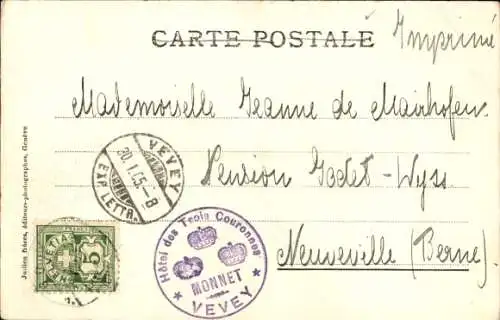 CARTE POSTALE
Imprimé
Mademoiselle Jeanne de Mairhofen
Pension Godet-Wyss
Neuveville (Berne)
VEVEY
30.I.05.-8
EXP. LETTR.
Hôtel des Trois Couronnes
MONNET
VEVEY
HELVETIA
5
Jullien frères, éditeurs-photographes, Genève